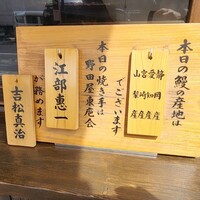 本日の鰻の産地は
静岡産
愛知産
宮崎産
山梨産
でございます
本日の焼き手は
野田屋東庖会
江部恵一
が務めます
吉松真治